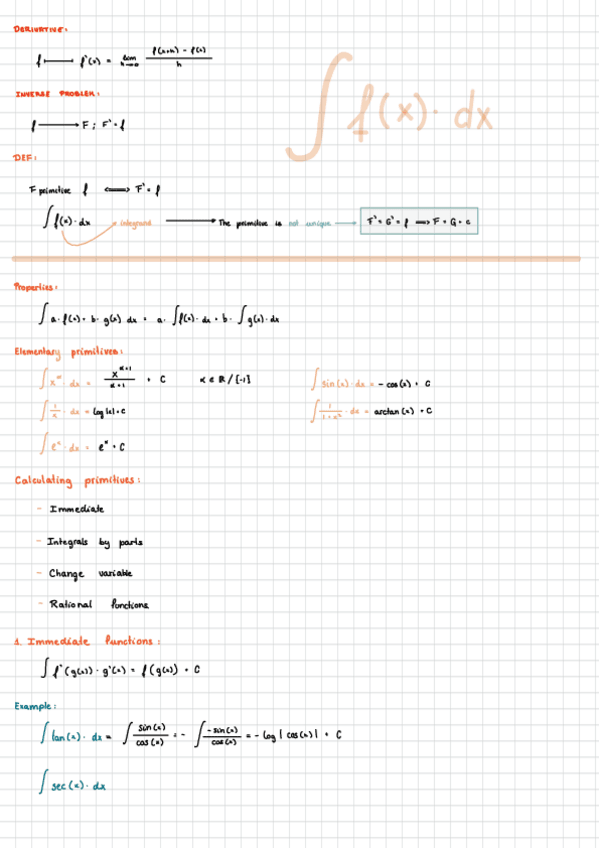 DERIVATIVE:
f ⟼ f'(x) = lim h→0 f(x+h) - f(x) / h
∫ f(x) · dx
INVERSE PROBLEM:
f ⟶ F ; F' = f
DEF:
F primitive f ⟺ F' = f
∫ f(x) · dx → integrand ⟶ The primitive is not unique ⟶ F' = G' = f ⟹ F = G + c
Properties:
∫ a · f(x) + b · g(x) dx = a · ∫ f(x) · dx + b · ∫ g(x) · dx
Elementary primitives:
∫ x^α · dx = x^(α+1) / α+1 + C α ∈ R / {-1} ∫ sin(x) · dx = - cos(x) + C
∫ 1/x · dx = log|x| + C ∫ 1/(1+x²) · dx = arctan(x) + C
∫ e^x · dx = e^x + C
Calculating primitives:
- Immediate
- Integrals by parts
- Change variable
- Rational functions
1. Immediate functions:
∫ f'(g(x)) · g'(x) = f(g(x)) + C
Example:
∫ tan(x) · dx = ∫ sin(x)/cos(x) = - ∫ -sin(x)/cos(x) = - log |cos(x)| + C
∫ sec(x) · dx